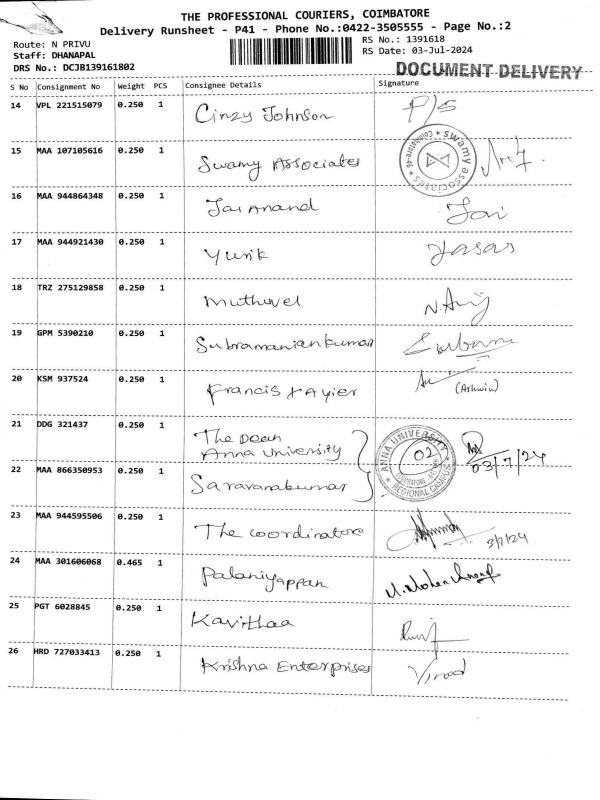 THE PROFESSIONAL COURIERS, COIMBATORE
Delivery Runsheet - P41 - Phone No.:0422-3505555 - Page No.:2
Route: N PRIVU
RS No.: 1391618
Staff: DHANAPAL
RS Date: 03-Jul-2024
DRS No.: DCJB139161802
DOCUMENT DELIVERY
S No Consignment No Weight PCS Consignee Details Signature
14 VPL 221515079 0.250 1 Cinzy Johnson P/S
15 MAA 107105616 0.250 1 Swamy Associates
Swamy associates * Coimbatore-46 *
16 MAA 944864348 0.250 1 Jai Anand Jai
17 MAA 944921430 0.250 1 Yurik
18 TRZ 275129858 0.250 1 Muthuvel
19 GPM 5390210 0.250 1 Subramaniankumar
20 KSM 937524 0.250 1 Francis Xavier (Ashwin)
21 DDG 321437 0.250 1 The Dean
Anna University
ANNA UNIVERSITY 02 REGIONAL CAMPUS
03/7/24
22 MAA 866350953 0.250 1 Saravanakumar
23 MAA 944595506 0.250 1 The coordinator 3/7/24
24 MAA 301606068 0.465 1 Palaniyappan
25 PGT 6028845 0.250 1 Kavithaa
26 HRD 727033413 0.250 1 Krishna Enterprises Vinod